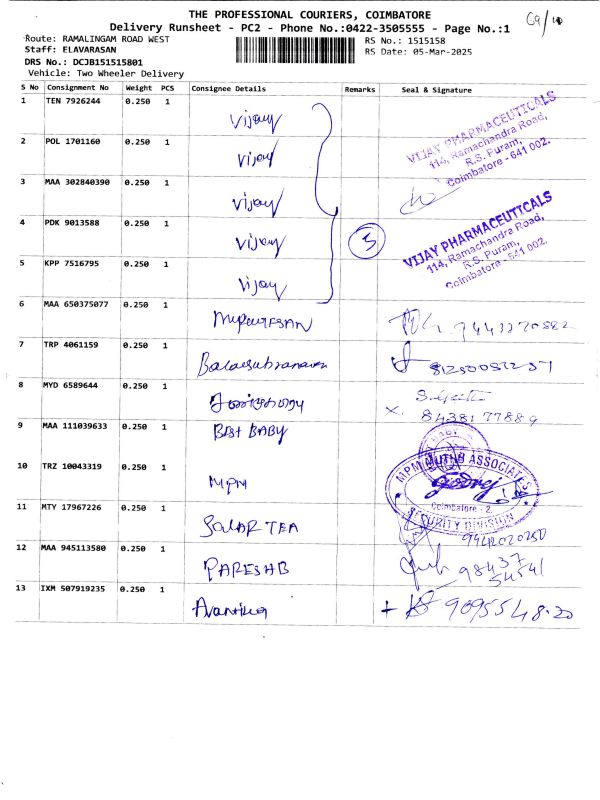 THE PROFESSIONAL COURIERS, COIMBATORE
Delivery Runsheet - PC2 - Phone No.:0422-3505555 - Page No.:1
Route: RAMALINGAM ROAD WEST
RS No.: 1515158
Staff: ELAVARASAN
RS Date: 05-Mar-2025
DRS No.: DCJB151515801
Vehicle: Two Wheeler Delivery
S No Consignment No Weight PCS Consignee Details Remarks Seal & Signature
1 TEN 7926244 0.250 1 Vijay
VIJAY PHARMACEUTICALS
114, Ramachandra Road,
R.S. Puram,
Coimbatore - 641 002.
2 POL 1701160 0.250 1 Vijay
3 MAA 302840390 0.250 1 Vijay
4 PDK 9013588 0.250 1 Vijay 5
VIJAY PHARMACEUTICALS
114, Ramachandra Road,
R.S. Puram,
Coimbatore - 641 002.
5 KPP 7516795 0.250 1 Vijay
6 MAA 650375077 0.250 1
7 TRP 4061159 0.250 1
8 MYD 6589644 0.250 1
8438177889
9 MAA 111039633 0.250 1 BEST BABY
10 TRZ 10043319 0.250 1 MPM
MPM MUTHU ASSOCIATES
Godrej
Coimbatore - 2
SECURITY DIVISION
11 MTY 17967226 0.250 1 SOLAR TEA
12 MAA 945113580 0.250 1 PARESHB
98437
54541
13 IXM 507919235 0.250 1 Avantika